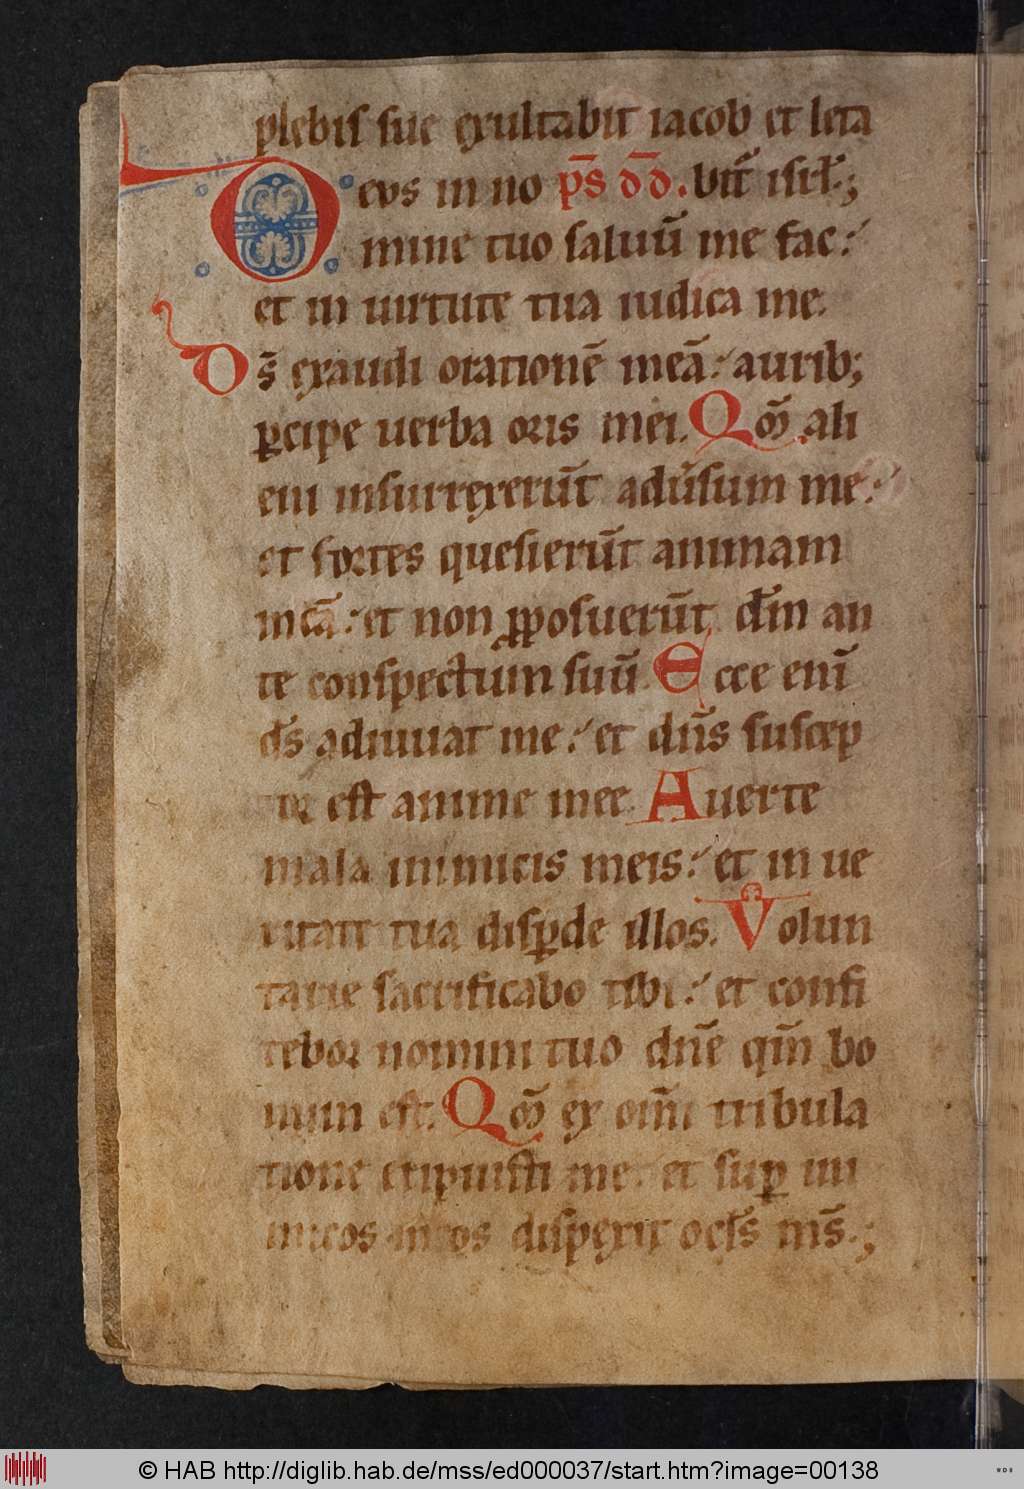 plebis sue exultabit iacob et leta
Deus in no p̄s d̄d. bit̄ isrl̄.;
mine tuo saluū me fac:
et in uirtute tua iudica me.
Ds̄ exaudi orationē meā: aurib;
ꝑcipe uerba oris mei. Qm̄ ali
eni insurrexerūt aduſ̛sum me:
et fortes quesierūt animam
meā: et non ꝓposuerūt dm̄ an
te conspectum suū. Ecce enī
ds̄ adiuuat me: et dn̄s suscep
tor est anime mee. Auerte
mala inimicis meis: et in ue
ritate tua disꝑde illos. Volun
tarie sacrificabo tibi: et confi
tebor nomini tuo dn̄e qm̄ bo
num est. Qm̄ ex om̄i tribula
tione eripuisti me: et suꝑ ini
micos meos dispexit ocl̄s ms̄.;
© HAB http://diglib.hab.de/mss/ed000037/start.htm?image=00138